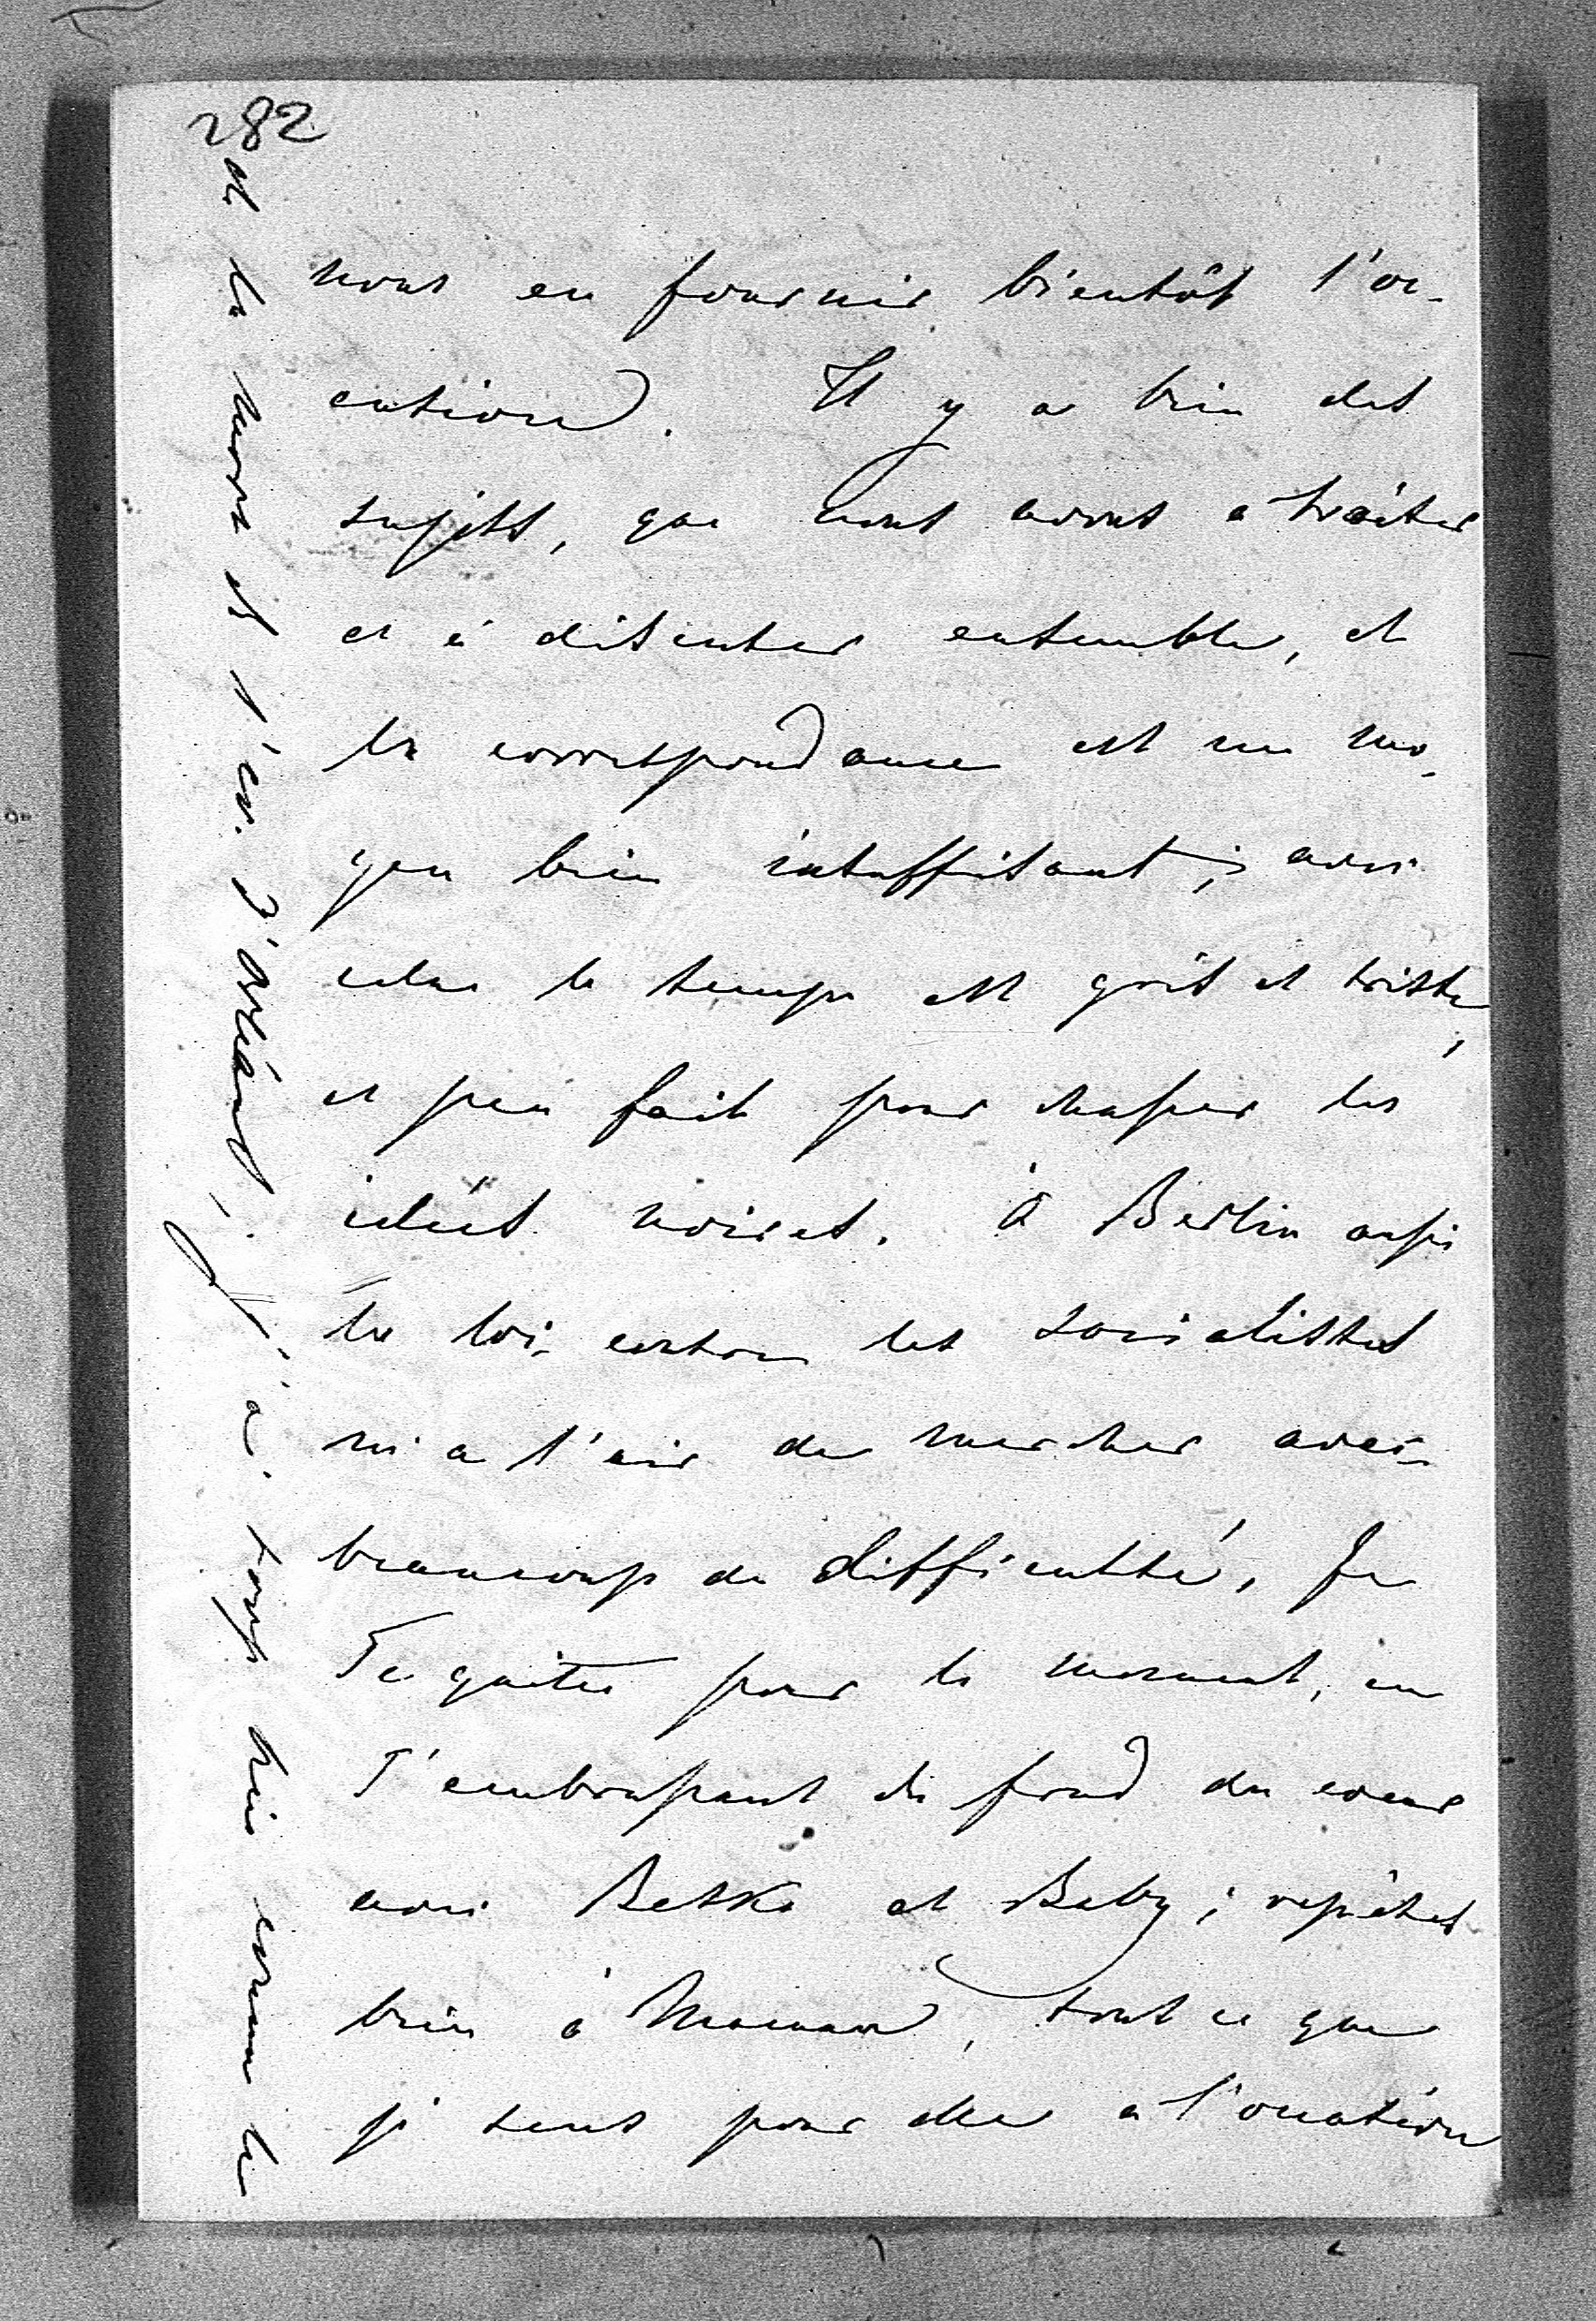 282
nous en fournir bientôt l'oc-
casion. Il y a bien des
sujets, que nous avons à traiter
et à discuter ensemble, et
la correspondance est un mo-
yen bien insuffisant; avec
cela le temps est gris et triste,
et peu fait pour chasser les
idées noires. à Berlin aussi
la loi contre les socialistes
m'a l'air de marcher avec
beaucoup de difficulté. Je
Te quitte pour le moment, en
T'embrassant du fond du coeur
avec Betsko et Baby; répètes
bien à Maman, tout ce que
je sens pour elle à l'occasion
de la mort de l'év. d'Orléans, il a. coup bien connu le